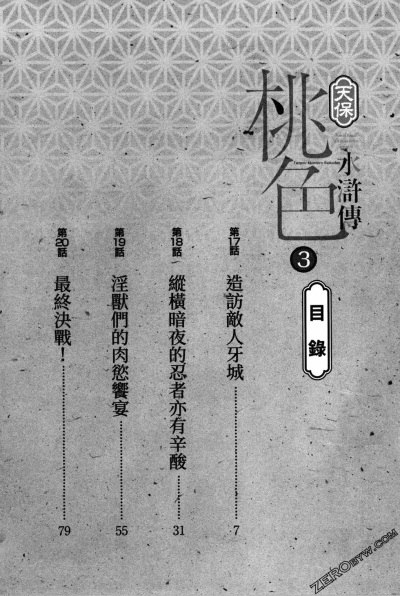 天保
桃色
水滸傳
3
目錄
第17話
造訪敵人牙城 7
第18話
縱橫暗夜的忍者亦有辛酸 31
第19話
淫獸們的肉慾饗宴 55
第20話
最終決戰! 79
ZEROBYW.COM